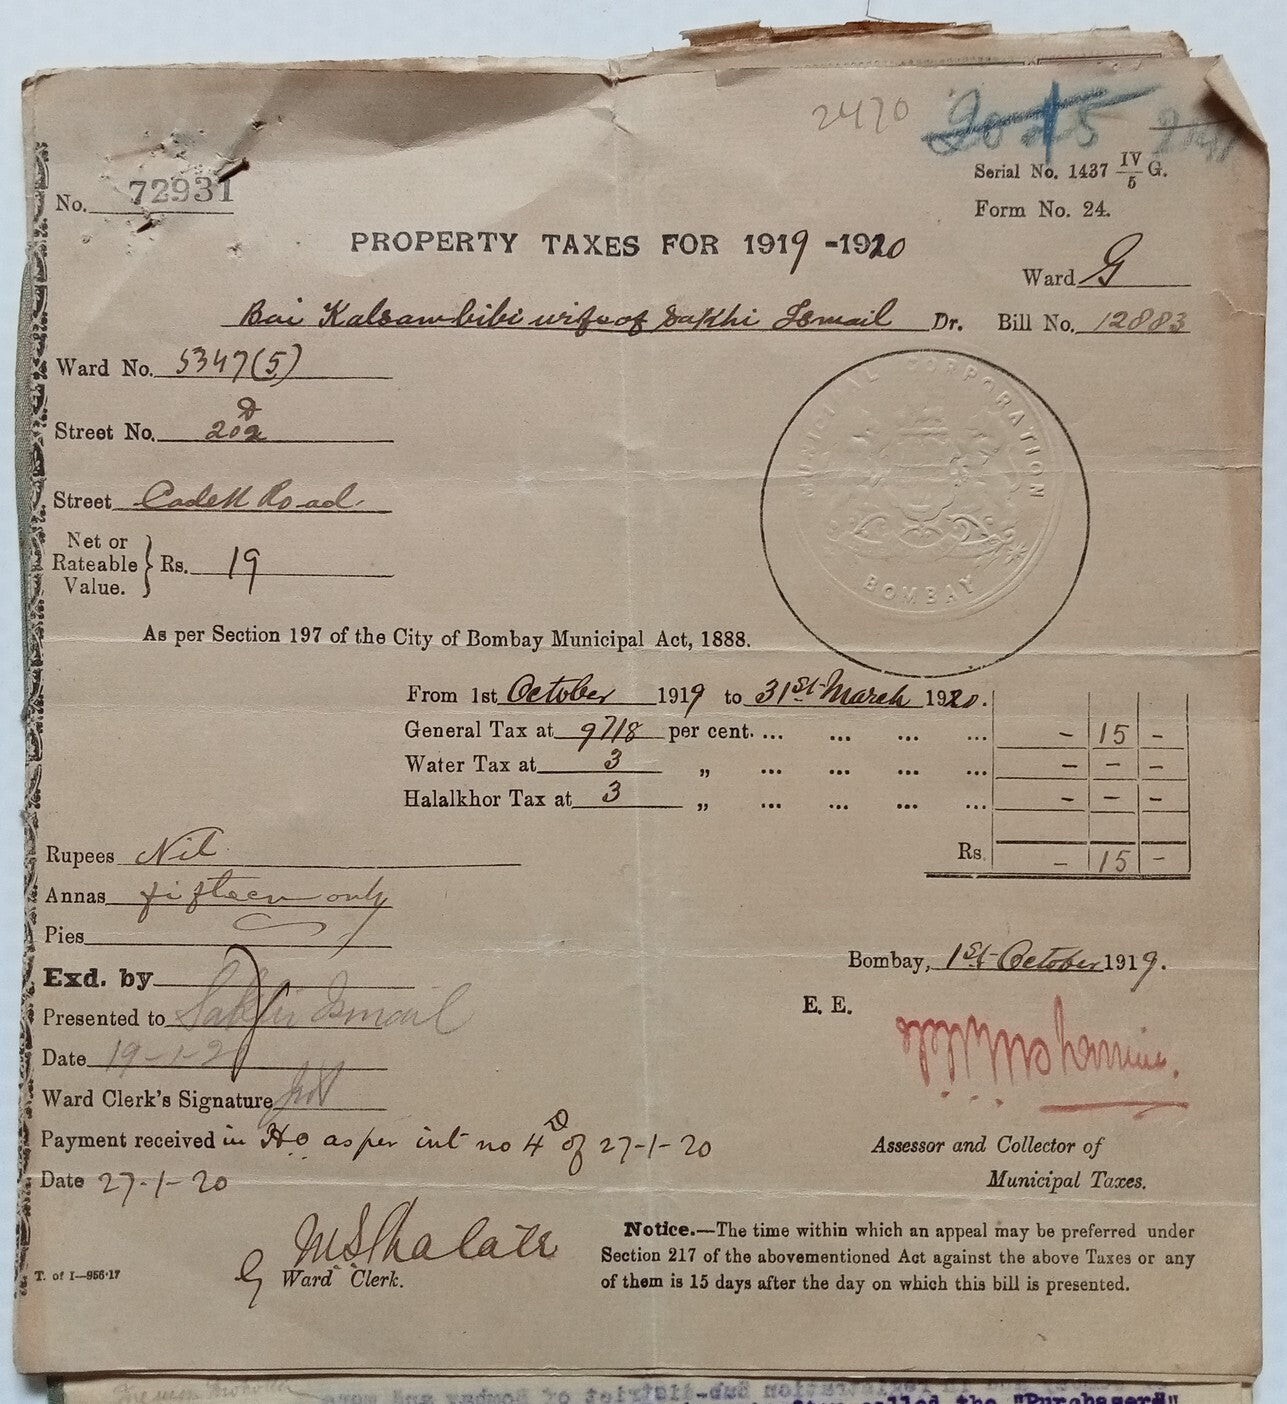 2470
Serial No. 1437 IV/5 G.
No. 72931
Form No. 24.
PROPERTY TAXES FOR 1919 -1920
Ward G
Bai Kalsambibi wife of Sakhi Ismail Dr. Bill No. 12883
Ward No. 5347(5)
Street No. 202
Street Cadell Road
MUNICIPAL CORPORATION
BOMBAY
Net or
Rateable } Rs. 19
Value.
As per Section 197 of the City of Bombay Municipal Act, 1888.
From 1st October 1919 to 31st March 1920.
General Tax at 9718 per cent. ... ... ... ... - 15 -
Water Tax at 3 „ ... ... ... ... - - -
Halalkhor Tax at 3 „ ... ... ... ... - - -
Rupees Nil Rs. - 15 -
Annas fifteen only
Pies
Bombay, 1st October 1919.
Exd. by
E. E.
Presented to Sakhi Ismail
Date 19-1-20
Ward Clerk's Signature
Payment received in H.o. as per int no 4D of 27-1-20
Assessor and Collector of
Municipal Taxes.
Date 27-1-20
G Ward Clerk.
Notice.—The time within which an appeal may be preferred under
Section 217 of the abovementioned Act against the above Taxes or any
of them is 15 days after the day on which this bill is presented.
T. of I—956-17
called the "Purchasers"